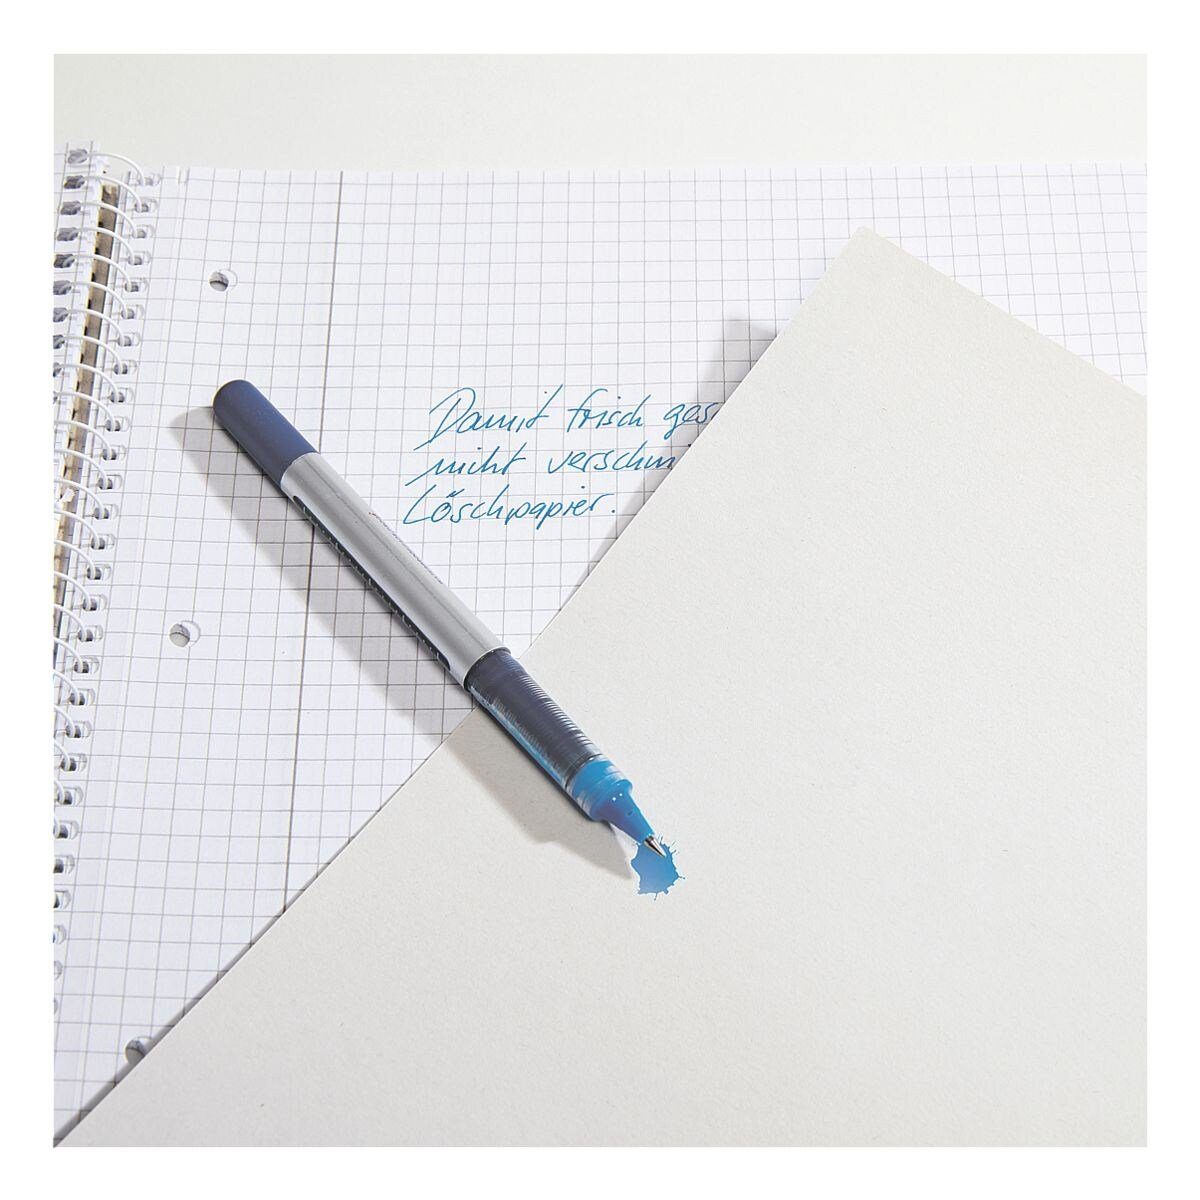 Damit frisch ges
nicht verschmi
Löschpapier.